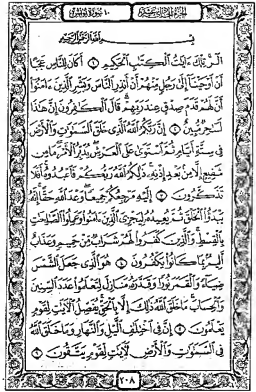 ١٠ سورة يونس
بِسْمِ اللَّهِ الرَّحْمَٰنِ الرَّحِيمِ
الٓر تِلْكَ ءَايَٰتُ الْكِتَٰبِ الْحَكِيمِ ١ أَكَانَ لِلنَّاسِ عَجَبًا
أَنْ أَوْحَيْنَآ إِلَىٰ رَجُلٍ مِّنْهُمْ أَنْ أَنذِرِ النَّاسَ وَبَشِّرِ الَّذِينَ ءَامَنُوٓا
أَنَّ لَهُمْ قَدَمَ صِدْقٍ عِندَ رَبِّهِمْ قَالَ الْكَٰفِرُونَ إِنَّ هَٰذَا
لَسَٰحِرٌ مُّبِينٌ ٢ إِنَّ رَبَّكُمُ اللَّهُ الَّذِي خَلَقَ السَّمَٰوَٰتِ وَالْأَرْضَ
فِي سِتَّةِ أَيَّامٍ ثُمَّ اسْتَوَىٰ عَلَى الْعَرْشِ يُدَبِّرُ الْأَمْرَ مَا مِن
شَفِيعٍ إِلَّا مِنۢ بَعْدِ إِذْنِهِ ذَٰلِكُمُ اللَّهُ رَبُّكُمْ فَاعْبُدُوهُ أَفَلَا
تَذَكَّرُونَ ٣ إِلَيْهِ مَرْجِعُكُمْ جَمِيعًا وَعْدَ اللَّهِ حَقًّا إِنَّهُ
يَبْدَؤُا الْخَلْقَ ثُمَّ يُعِيدُهُ لِيَجْزِيَ الَّذِينَ ءَامَنُوا وَعَمِلُوا الصَّٰلِحَٰتِ
بِالْقِسْطِ وَالَّذِينَ كَفَرُوا لَهُمْ شَرَابٌ مِّنْ حَمِيمٍ وَعَذَابٌ
أَلِيمٌۢ بِمَا كَانُوا يَكْفُرُونَ ٤ هُوَ الَّذِي جَعَلَ الشَّمْسَ
ضِيَآءً وَالْقَمَرَ نُورًا وَقَدَّرَهُ مَنَازِلَ لِتَعْلَمُوا عَدَدَ السِّنِينَ
وَالْحِسَابَ مَا خَلَقَ اللَّهُ ذَٰلِكَ إِلَّا بِالْحَقِّ يُفَصِّلُ الْءَايَٰتِ لِقَوْمٍ
يَعْلَمُونَ ٥ إِنَّ فِي اخْتِلَٰفِ الَّيْلِ وَالنَّهَارِ وَمَا خَلَقَ اللَّهُ
فِي السَّمَٰوَٰتِ وَالْأَرْضِ لَءَايَٰتٍ لِّقَوْمٍ يَتَّقُونَ ٦
٢٠٨